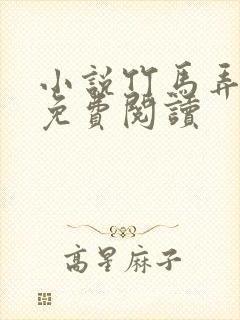 小說竹馬弄
免費閱讀
高星麻子